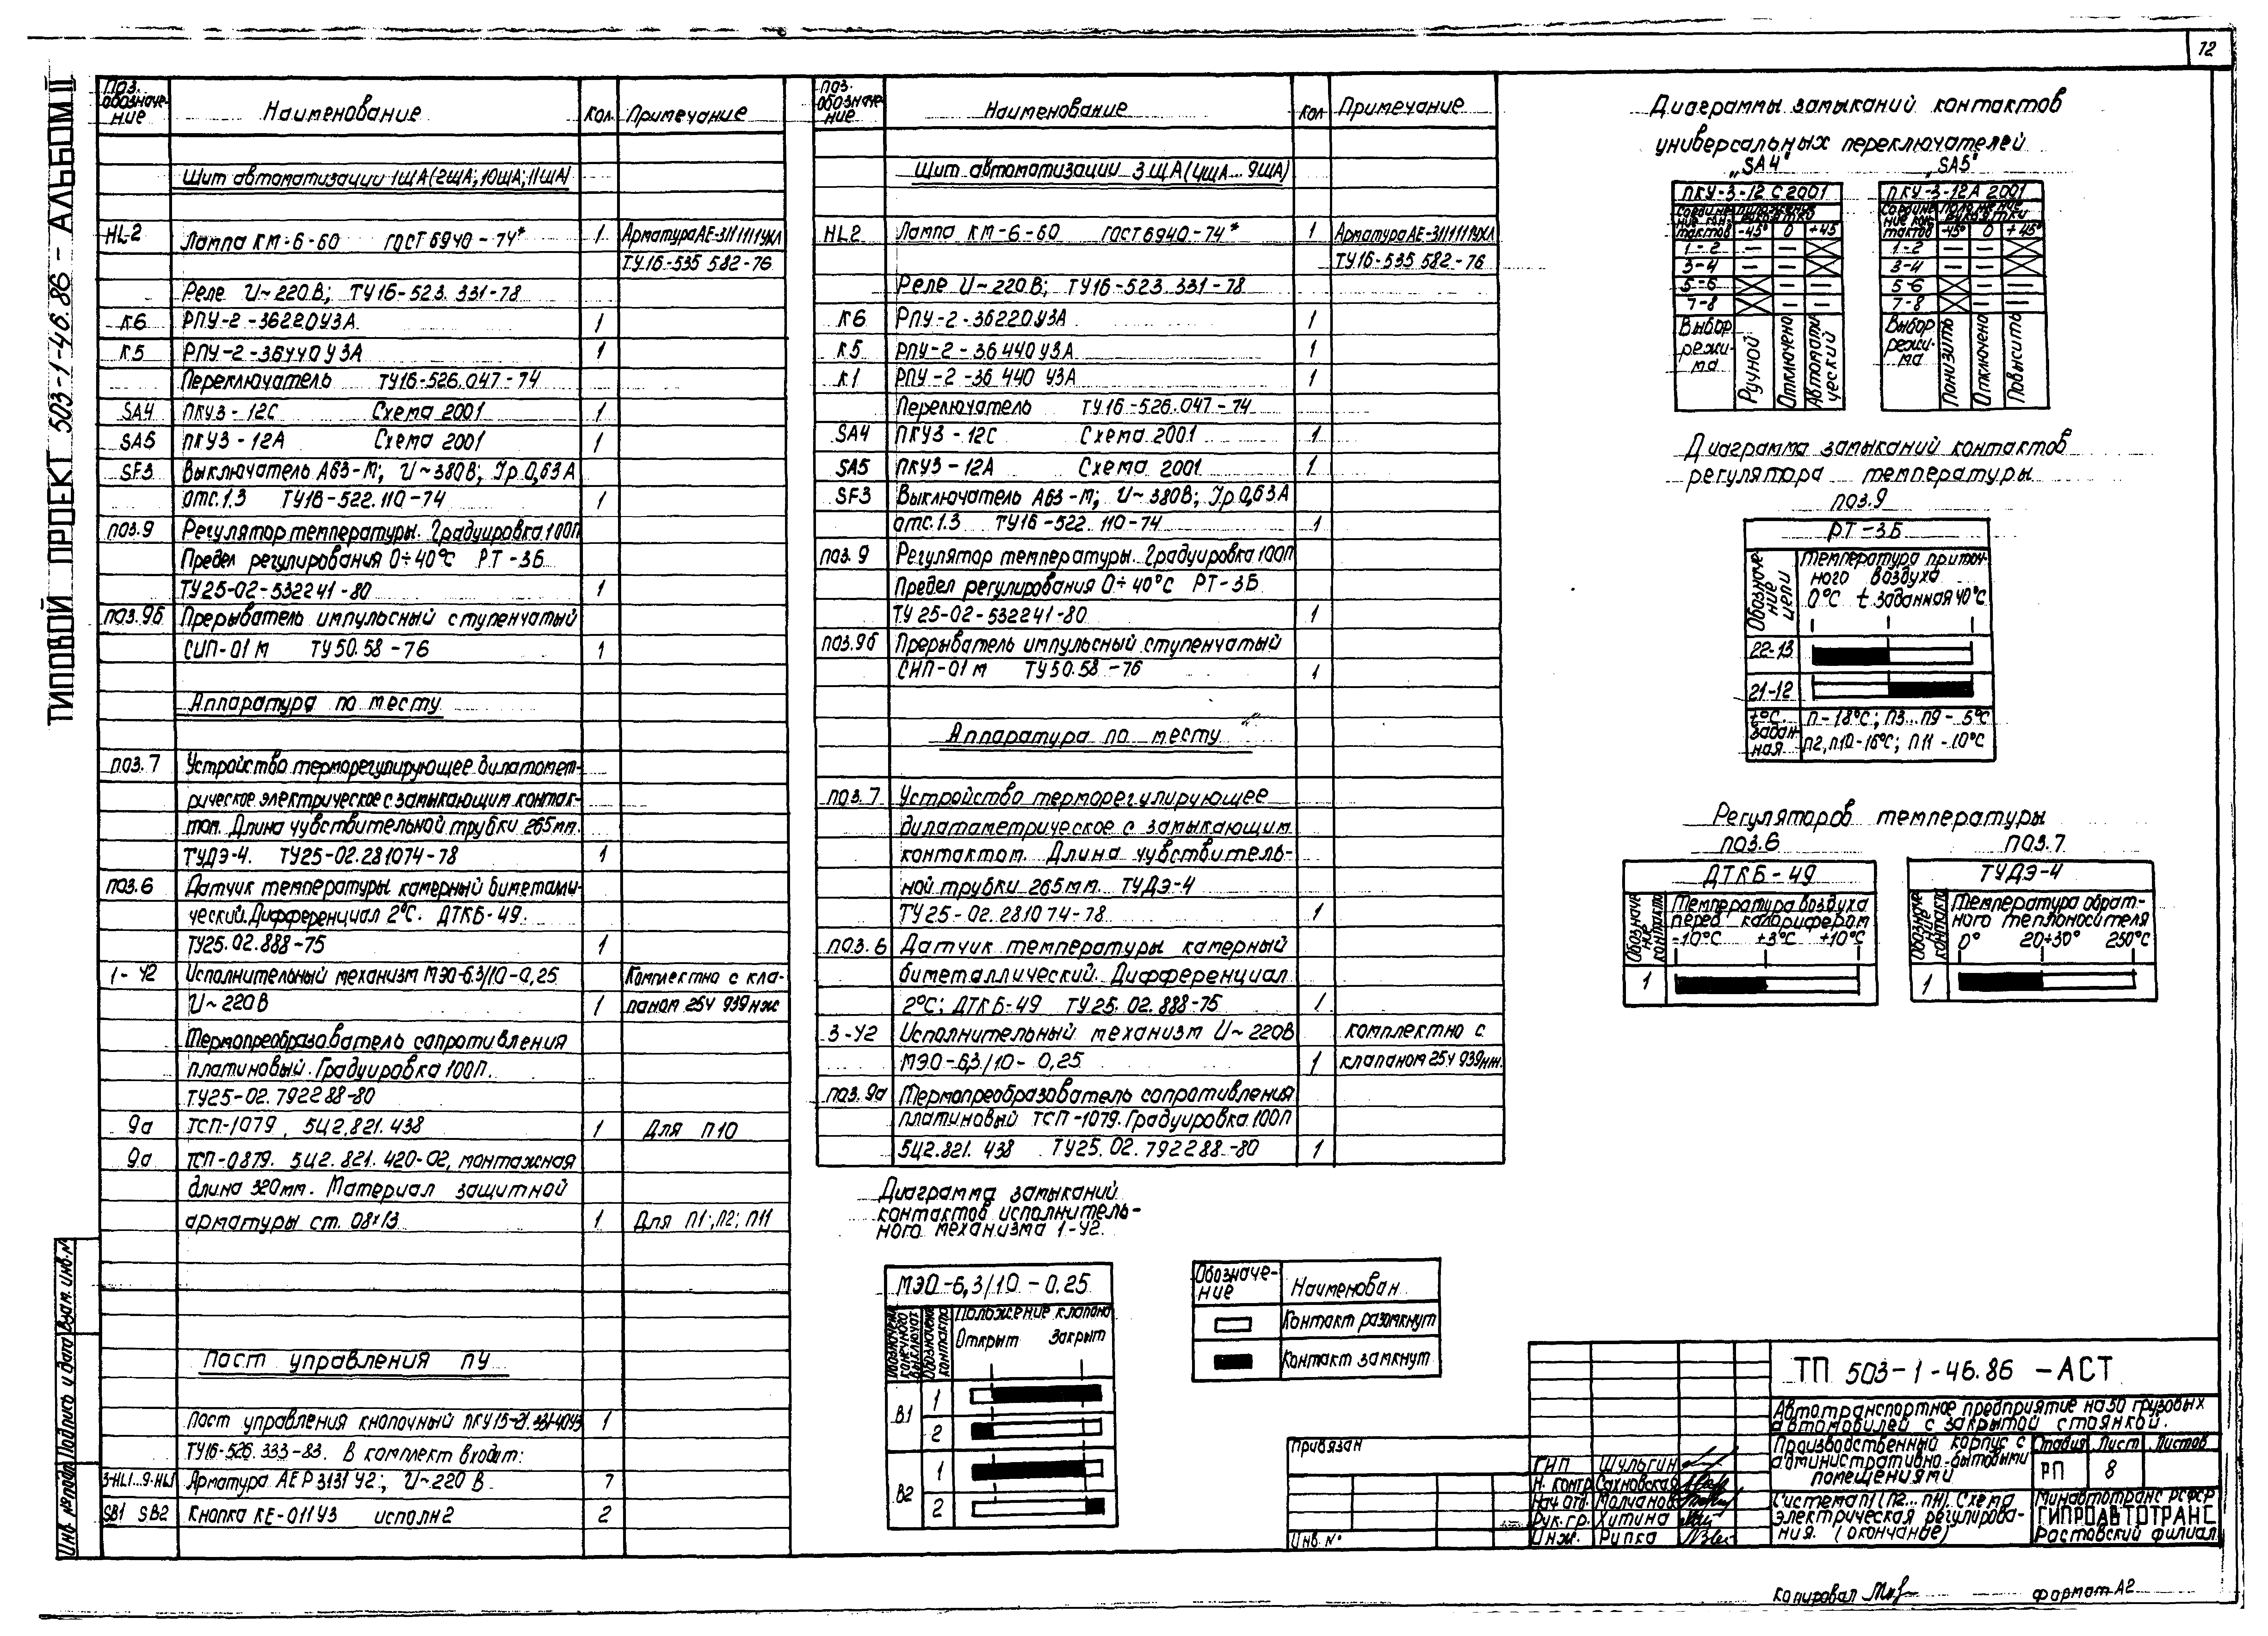 12
ТИПОВОЙ ПРОЕКТ 503-1-46.86 - АЛЬБОМ II
Поз. обозначе-ние Наименование Кол. Примечание
Щит автоматизации 1ЩА (2ЩА; 10ЩА; 11ЩА)
HL2 Лампа КМ-6-60 ГОСТ 6940-74* 1 Арматура АЕ-3111111УХЛ
ТУ16-535 582-76
Реле U~220В; ТУ16-523.331-78
К6 РПУ-2-36220У3А 1
К5 РПУ-2-36440У3А 1
Переключатель ТУ16-526.047-74
SA4 ПКУ3-12С Схема 2001 1
SA5 ПКУ3-12А Схема 2001 1
SF3 Выключатель А63-М; U~380В; Iр 0,63А
отс.1.3 ТУ16-522.110-74 1
поз.9 Регулятор температуры. Градуировка 100П
Предел регулирования 0÷40°С РТ-3Б
ТУ25-02-532241-80 1
поз.9б Прерыватель импульсный ступенчатый
СИП-01М ТУ50.58-76 1
Аппаратура по месту
поз.7 Устройство терморегулирующее дилатомет-
рическое электрическое с замыкающим контак-
том. Длина чувствительной трубки 265мм.
ТУДЭ-4. ТУ25-02.281074-78 1
поз.6 Датчик температуры камерный биметалли-
ческий. Дифференциал 2°С. ДТКБ-49.
ТУ25.02.888-75 1
1-У2 Исполнительный механизм МЭО-6.3/10-0,25 Комплектно с кла-
U~220В 1 паном 25ч 939нж
Термопреобразователь сопротивления
платиновый. Градуировка 100П.
ТУ25-02.792288-80
9а ТСП-1079, 5Ц2.821.438 1 Для П10
9а ТСП-0879. 5Ц2.821.420-02, монтажная
длина 320мм. Материал защитной
арматуры ст. 08х13 1 Для П1; П2; П11
Пост управления ПУ
Пост управления кнопочный ПКУ15-21.331-40У3 1
ТУ16-526.333-83. В комплект входит:
3-HL1...9-HL1 Арматура АЕР3131У2; U~220 В 7
SB1 SB2 Кнопка КЕ-011У3 исполн2 2
Поз. обозначе-ние Наименование Кол Примечание
Щит автоматизации 3ЩА (4ЩА... 9ЩА)
HL2 Лампа КМ-6-60 ГОСТ 6940-74* 1 Арматура АЕ-3111111УХЛ
ТУ16-535 582-76
Реле U~220В; ТУ16-523.331-78
К6 РПУ-2-36220У3А 1
К5 РПУ-2-36440У3А 1
К1 РПУ-2-36 440 У3А 1
Переключатель ТУ16-526.047-74
SA4 ПКУ3-12С Схема 2001 1
SA5 ПКУ3-12А Схема 2001 1
SF3 Выключатель А63-М; U~380В; Iр 0,63А
отс.1.3 ТУ16-522.110-74 1
поз.9 Регулятор температуры. Градуировка 100П
Предел регулирования 0÷40°С РТ-3Б
ТУ 25-02-532241-80 1
поз.9б Прерыватель импульсный ступенчатый
СИП-01М ТУ50.58-76 1
Аппаратура по месту
поз.7 Устройство терморегулирующее
дилатометрическое с замыкающим
контактом. Длина чувствитель-
ной трубки 265мм. ТУДЭ-4
ТУ25-02.281074-78 1
поз.6 Датчик температуры камерный
биметаллический. Дифференциал
2°С; ДТКБ-49 ТУ25.02.888-75 1
3-У2 Исполнительный механизм U~220В комплектно с
МЭО-6,3/10-0,25 1 клапаном 25ч 939нж.
поз.9а Термопреобразователь сопротивления
платиновый ТСП-1079. Градуировка 100П
5Ц2.821.438 ТУ25.02.792288-80 1
Диаграмма замыканий
контактов исполнитель-
ного механизма 1-У2.
МЭО-6,3/10-0.25
Обозначение конечного выключат. Обозначение контакта Положение клапана
Открыт Закрыт
В1 1
2
В2 1
2
Обозначе-ние Наименован
Контакт разомкнут
Контакт замкнут
Диаграммы замыканий контактов
универсальных переключателей
"SA4" "SA5"
ПКУ-3-12 С 2001
Соедине-ние кон-тактов Положение рукоятки
-45° 0 +45
1-2
3-4
5-6
7-8
Выбор режи-ма Ручной Отключено Автоматический
ПКУ-3-12А 2001
Соедине-ние кон-тактов Положение рукоятки
-45° 0 +45°
1-2
3-4
5-6
7-8
Выбор режи-ма Понизить Отключено Повысить
Диаграмма замыканий контактов
регулятора температуры
поз.9
РТ-3Б
Обозначение цепи Температура приточ-
ного воздуха
0°С t заданная 40°С
22-13
21-12
t°С задан-ная П-18°С; П3...П9-5°С
П2, П10-16°С; П11-10°С
Регуляторов температуры
поз.6 поз.7
ДТКБ-49
Обозначение контакта Температура воздуха
перед калорифером
-10°С +3°С +10°С
1
ТУДЭ-4
Обозначение контакта Температура обрат-
ного теплоносителя
0° 20÷30° 250°С
1
Привязан
Инв. N°
ГИП Шульгин
Н. контр. Сахновская
Нач. отд. Молчанов
Рук. гр. Хитина
Инж. Рупка
ТП 503-1-46.86 -АСТ
Автотранспортное предприятие на 50 грузовых
автомобилей с закрытой стоянкой.
Производственный корпус с
административно-бытовыми
помещениями
Стадия Лист Листов
РП 8
Система П1 (П2...П11). Схема
электрическая регулирова-
ния. (окончание)
Минавтотранс РСФСР
ГИПРОАВТОТРАНС
Ростовский филиал
Инв. № подл. Подпись и дата Взам. инв. №
Копировал
Формат А2